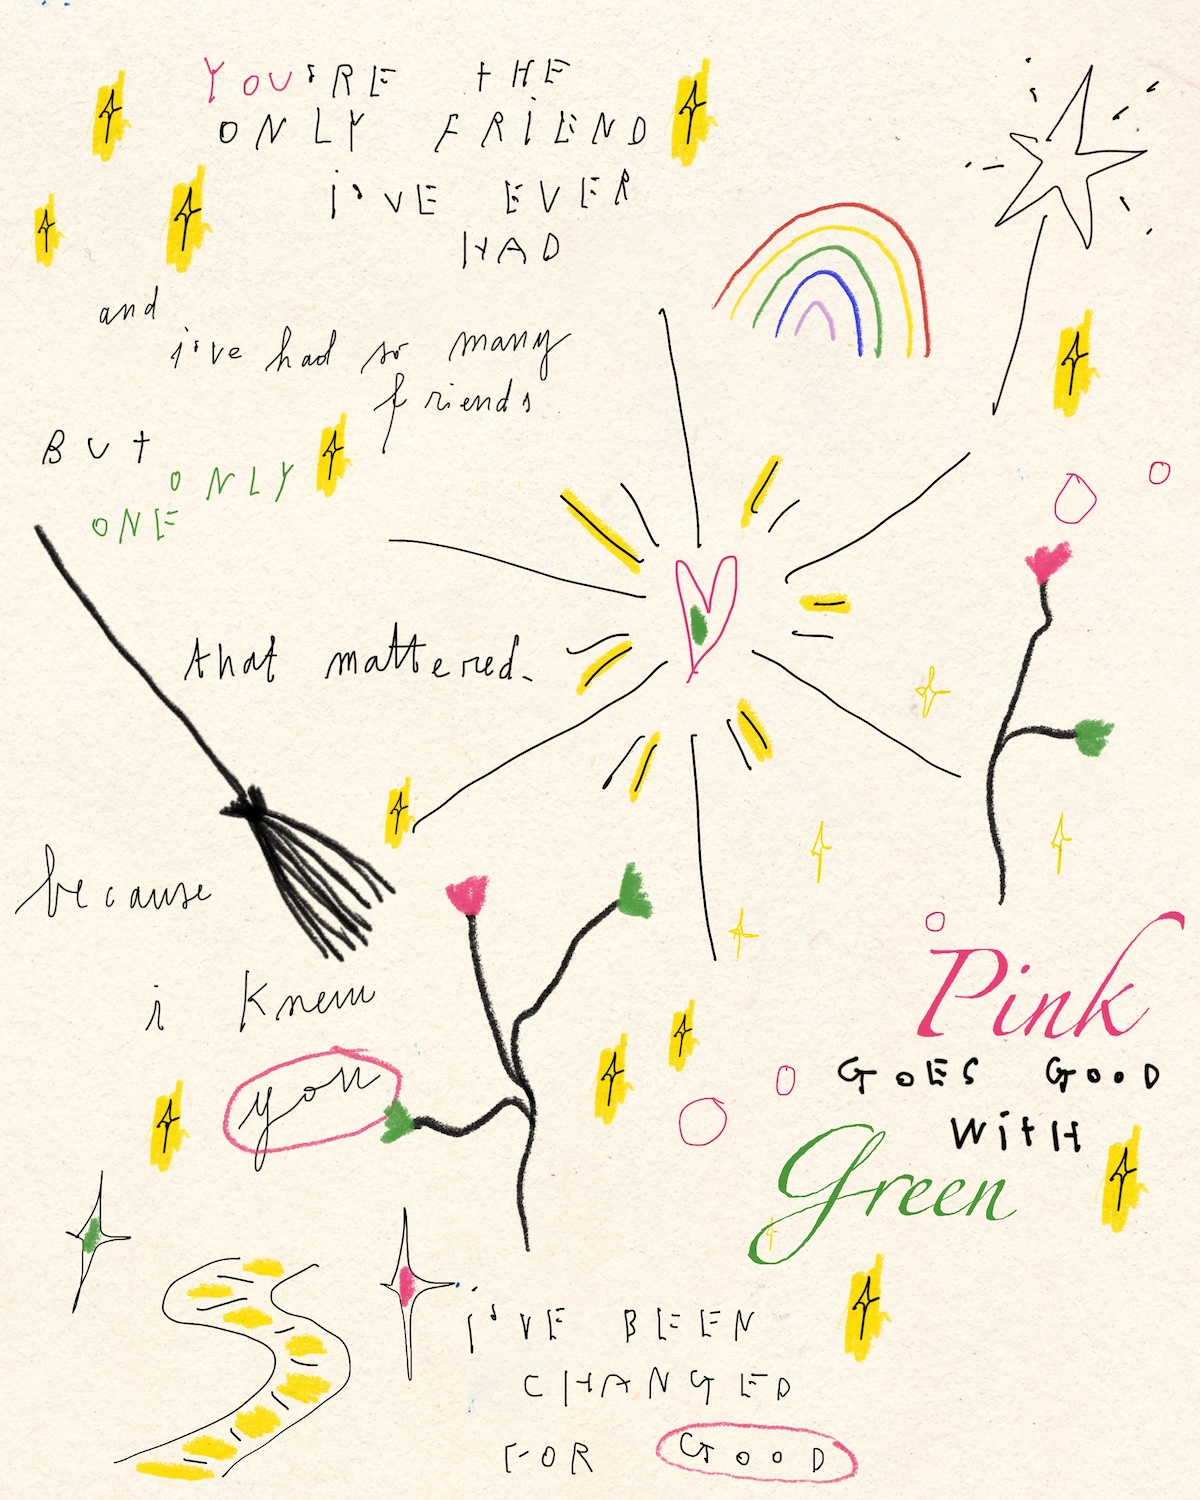 YOU'RE THE
ONLY FRIEND
I'VE EVER
HAD
and
i've had so many
friends
BUT
ONLY
ONE
that mattered.
because
i knew
you
Pink
GOES GOOD
WITH
Green
I'VE BEEN
CHANGED
FOR GOOD